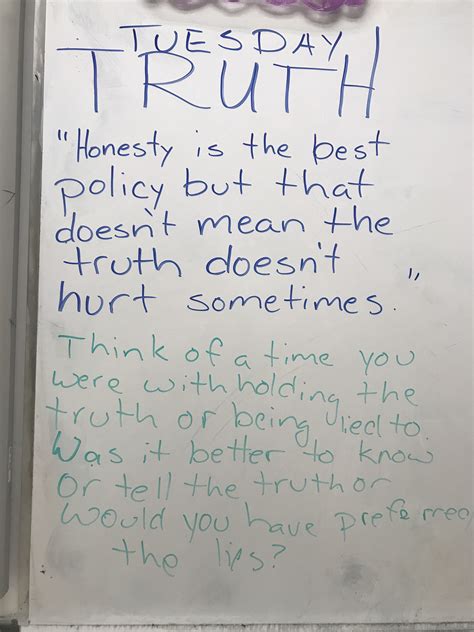 TUESDAY
TRUTH
"Honesty is the best
policy but that
doesn't mean the
truth doesn't
hurt sometimes."
Think of a time you
were withholding the
truth or being lied to.
Was it better to know
or tell the truth or
would you have preferred
the lies?